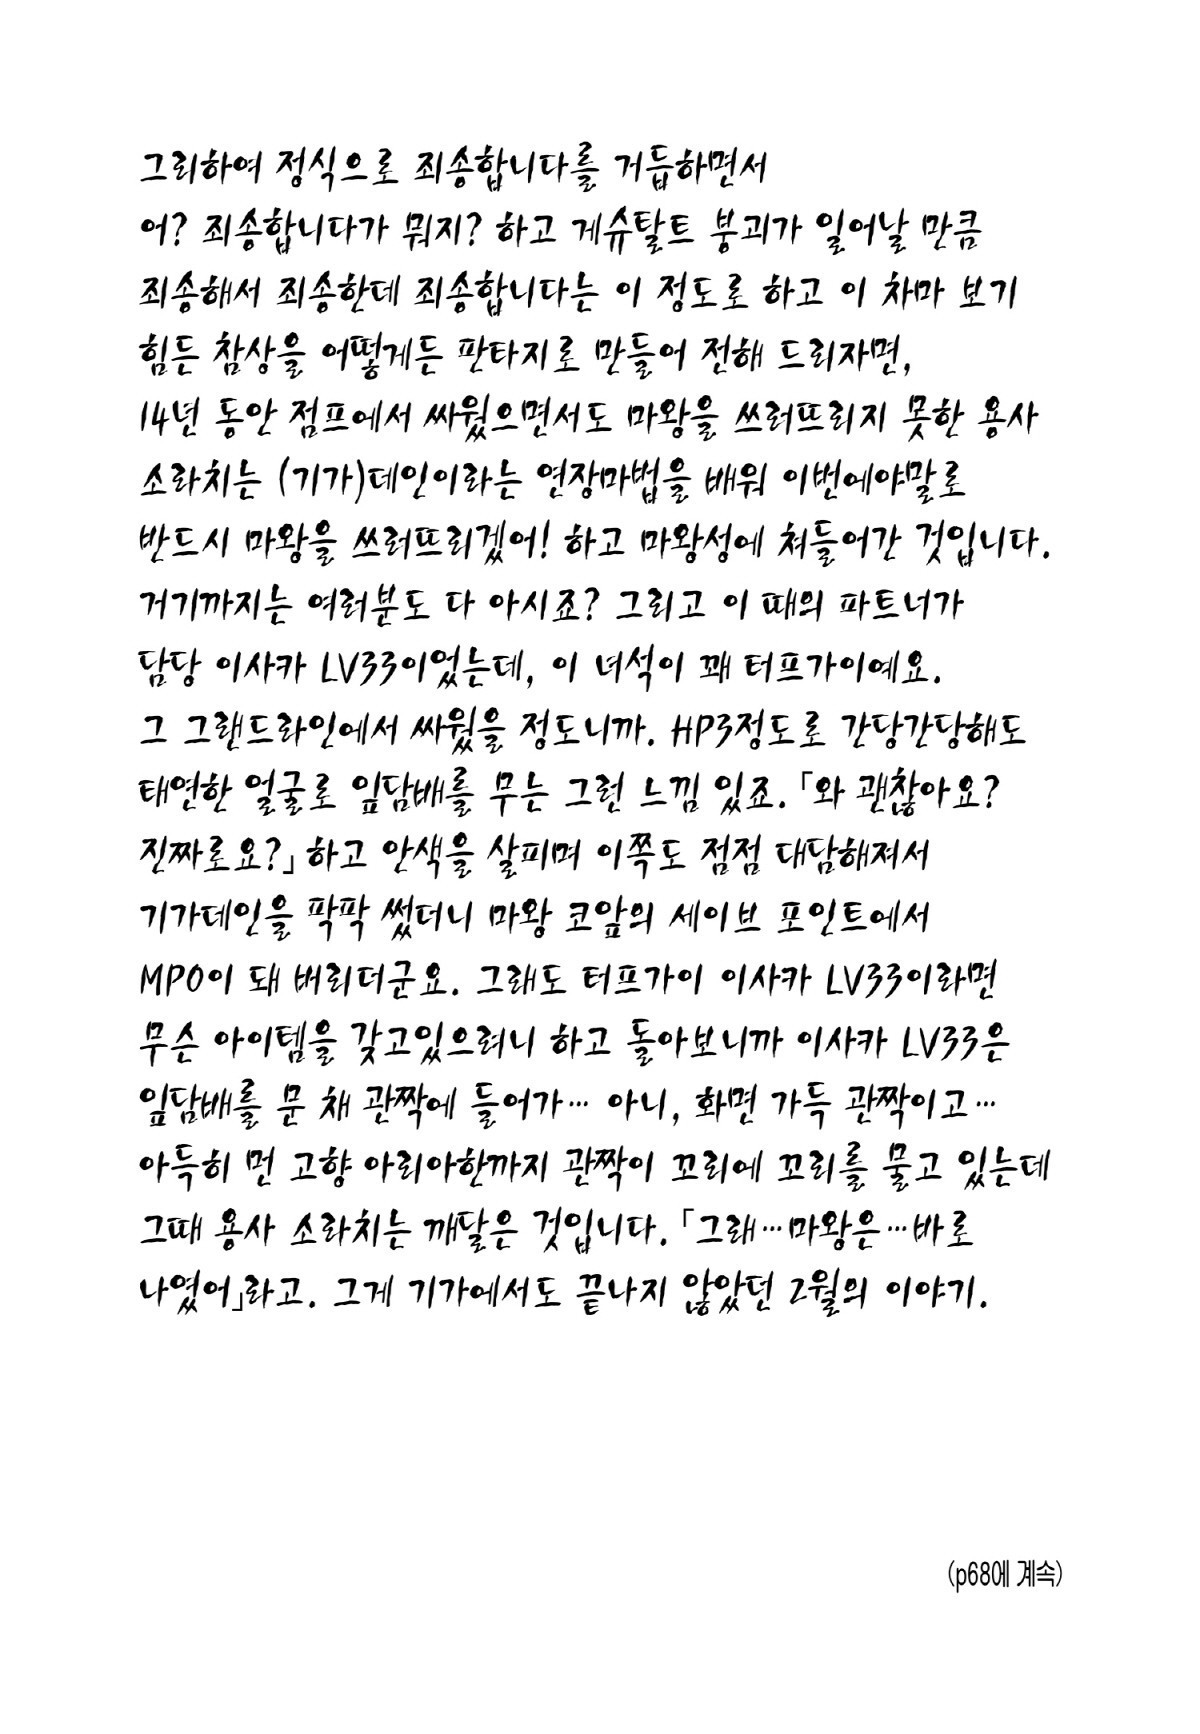 그리하여 정식으로 죄송합니다를 거듭하면서
어? 죄송합니다가 뭐지? 하고 게슈탈트 붕괴가 일어날 만큼
죄송해서 죄송한데 죄송합니다는 이 정도로 하고 이 차마 보기
힘든 참상을 어떻게든 판타지로 만들어 전해 드리자면,
14년 동안 점프에서 싸웠으면서도 마왕을 쓰러뜨리지 못한 용사
소라치는 (기가)데인이라는 연장마법을 배워 이번에야말로
반드시 마왕을 쓰러뜨리겠어! 하고 마왕성에 쳐들어간 것입니다.
거기까지는 여러분도 다 아시죠? 그리고 이 때의 파트너가
담당 이사카 LV33이었는데, 이 녀석이 꽤 터프가이예요.
그 그랜드라인에서 싸웠을 정도니까. HP3정도로 간당간당해도
태연한 얼굴로 잎담배를 무는 그런 느낌 있죠. 「와 괜찮아요?
진짜로요?」 하고 안색을 살피며 이쪽도 점점 대담해져서
기가데인을 팍팍 썼더니 마왕 코앞의 세이브 포인트에서
MP0이 돼 버리더군요. 그래도 터프가이 이사카 LV33이라면
무슨 아이템을 갖고있으려니 하고 돌아보니까 이사카 LV33은
잎담배를 문 채 관짝에 들어가… 아니, 화면 가득 관짝이고…
아득히 먼 고향 아리아한까지 관짝이 꼬리에 꼬리를 물고 있는데
그때 용사 소라치는 깨달은 것입니다. 「그래…마왕은…바로
나였어」라고. 그게 기가에서도 끝나지 않았던 2월의 이야기.
(p68에 계속)